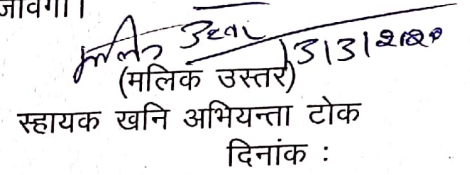 जावेगा।
(मलिक उस्तर)
स्हायक खनि अभियन्ता टोक
दिनांक :